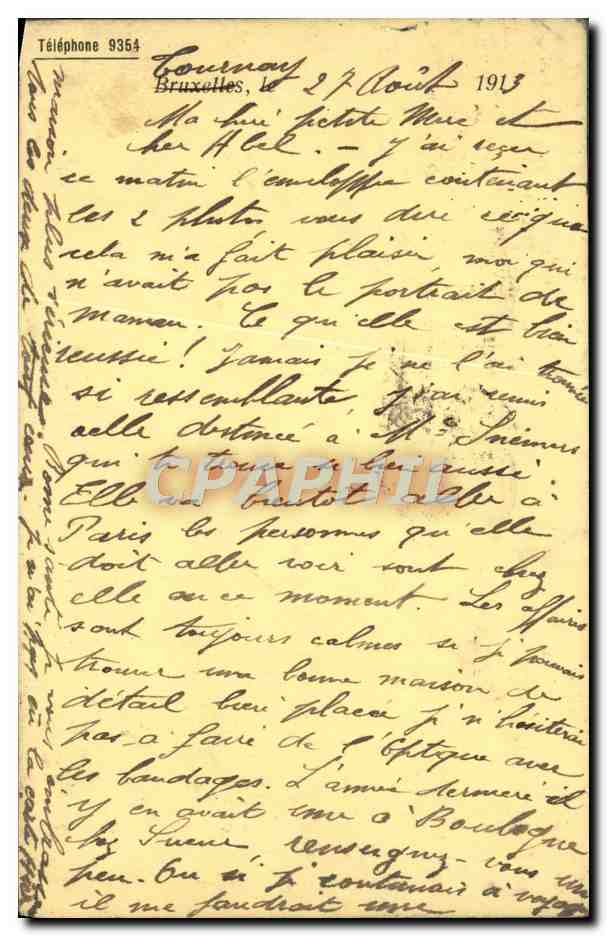 Téléphone 9354
Tournay
Bruxelles, le 27 Août 1913
Ma petite Mère et
cher Abel. — J'ai reçu
ce matin l'enveloppe contenant
les 2 photos vous dire ce que
cela m'a fait plaisir, moi qui
n'avait pas le portrait de
maman. Ce qu'elle est bien
reussie! Jamais je ne l'ai trouvée
si ressemblante, j'ai remis
celle destinée à Me
qui te trouve si bien aussi.
Elle va bientôt aller à
Paris les personnes qu'elle
doit aller voir sont chez
elle en ce moment. Les affaires
sont toujours calmes si je pouvais
trouver une bonne maison de
détail bien placée je n'hésiterai
pas à faire de l'Optique avec
les bandages. L'année dernière il
y en avait une à Boulogne
chez renseignez-vous un
peu. Ou si je continuais à voyager
il me faudrait une
maison plus sérieuse. Bonne santé je vous embrasse
tous les deux de tout cœur. Je n'ai pas eu la carte
CPAPHIL